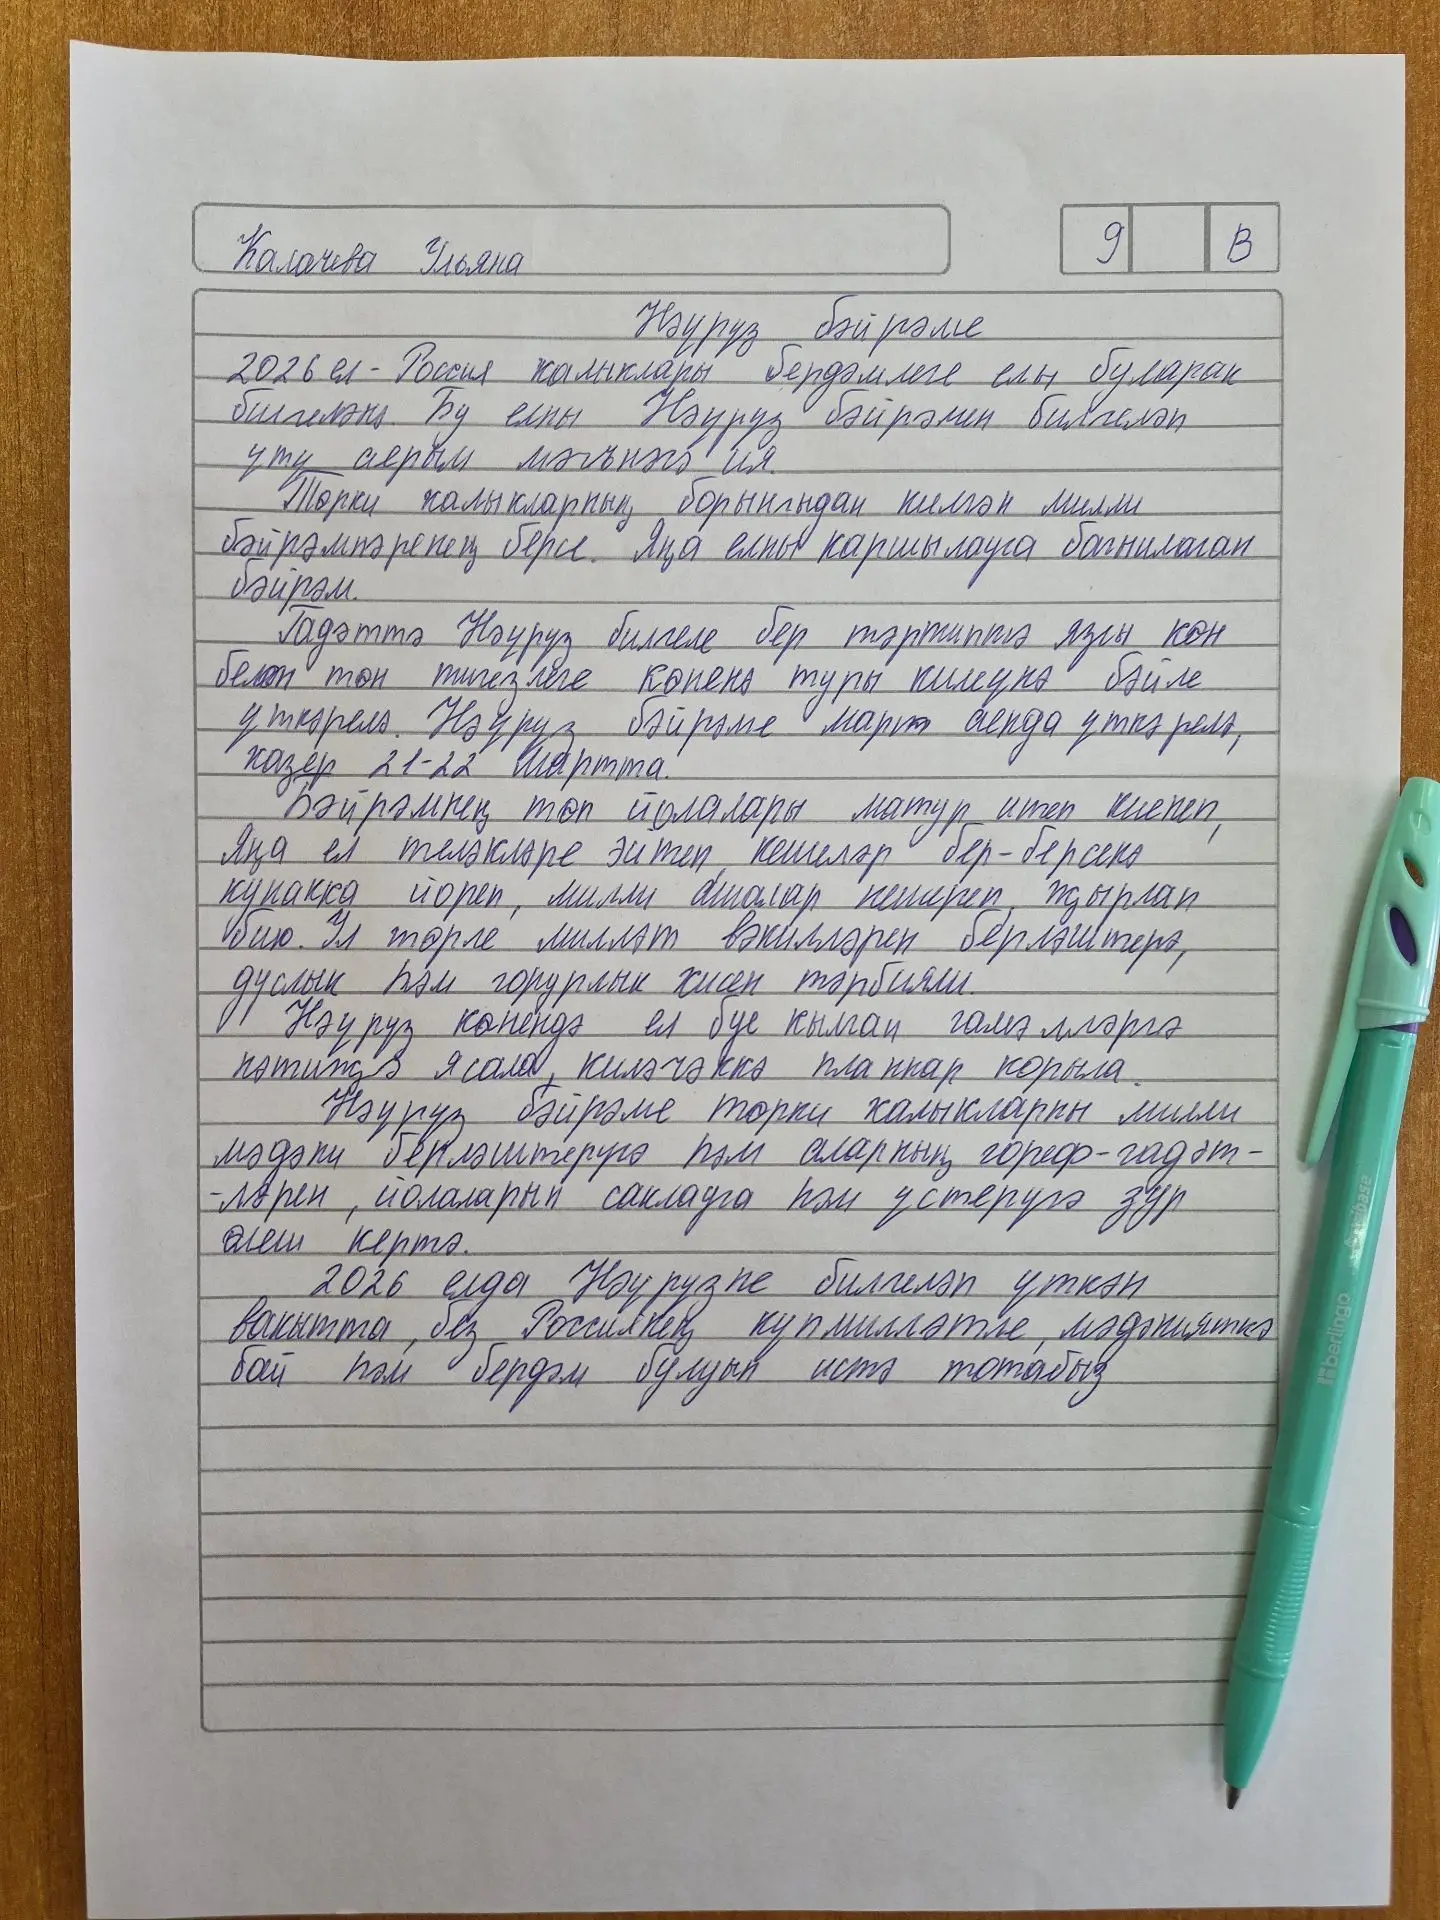 Калачева Ульяна
9 В
Нәүрүз бәйрәме
2026 ел - Россия халыклары бердәмлеге елы буларак
билгеләнә. Бу елны Нәүрүз бәйрәмен билгеләп
үтү аерым мәгънәгә ия.
Төрки халыкларның борынгыдан килгән милли
бәйрәмнәренең берсе. Яңа елны каршылауга багышланган
бәйрәм.
Гадәттә Нәүрүз билгеле бер тәртиптә язгы көн
белән төн тигезлеге көненә туры килүенә бәйле
үткәрелә. Нәүрүз бәйрәме март аенда үткәрелә,
хәзер 21-22 мартта.
Бәйрәмнең төп йолалары матур итеп киенеп,
Яңа ел теләкләре әйтеп, кешеләр бер-берсенә
кунакка йөреп, милли ашлар пешереп, җырлап
бию. Ул төрле милләт вәкилләрен берләштерә,
дуслык һәм горурлык хисен тәрбияли.
Нәүрүз көнендә ел буе кылган гамәлләргә
нәтиҗә ясала, киләчәккә планнар корыла.
Нәүрүз бәйрәме төрки халыкларны милли
мәдәни берләштерүгә һәм аларның гореф-гадәт-
-ләрен, йолаларын саклауга һәм үстерүгә зур
өлеш кертә.
2026 елда Нәүрүзне билгеләп үткән
вакытта, без Россиянең күпмилләтле, мәдәнияткә
бай һәм бердәм булуын истә тотабыз
berlingo